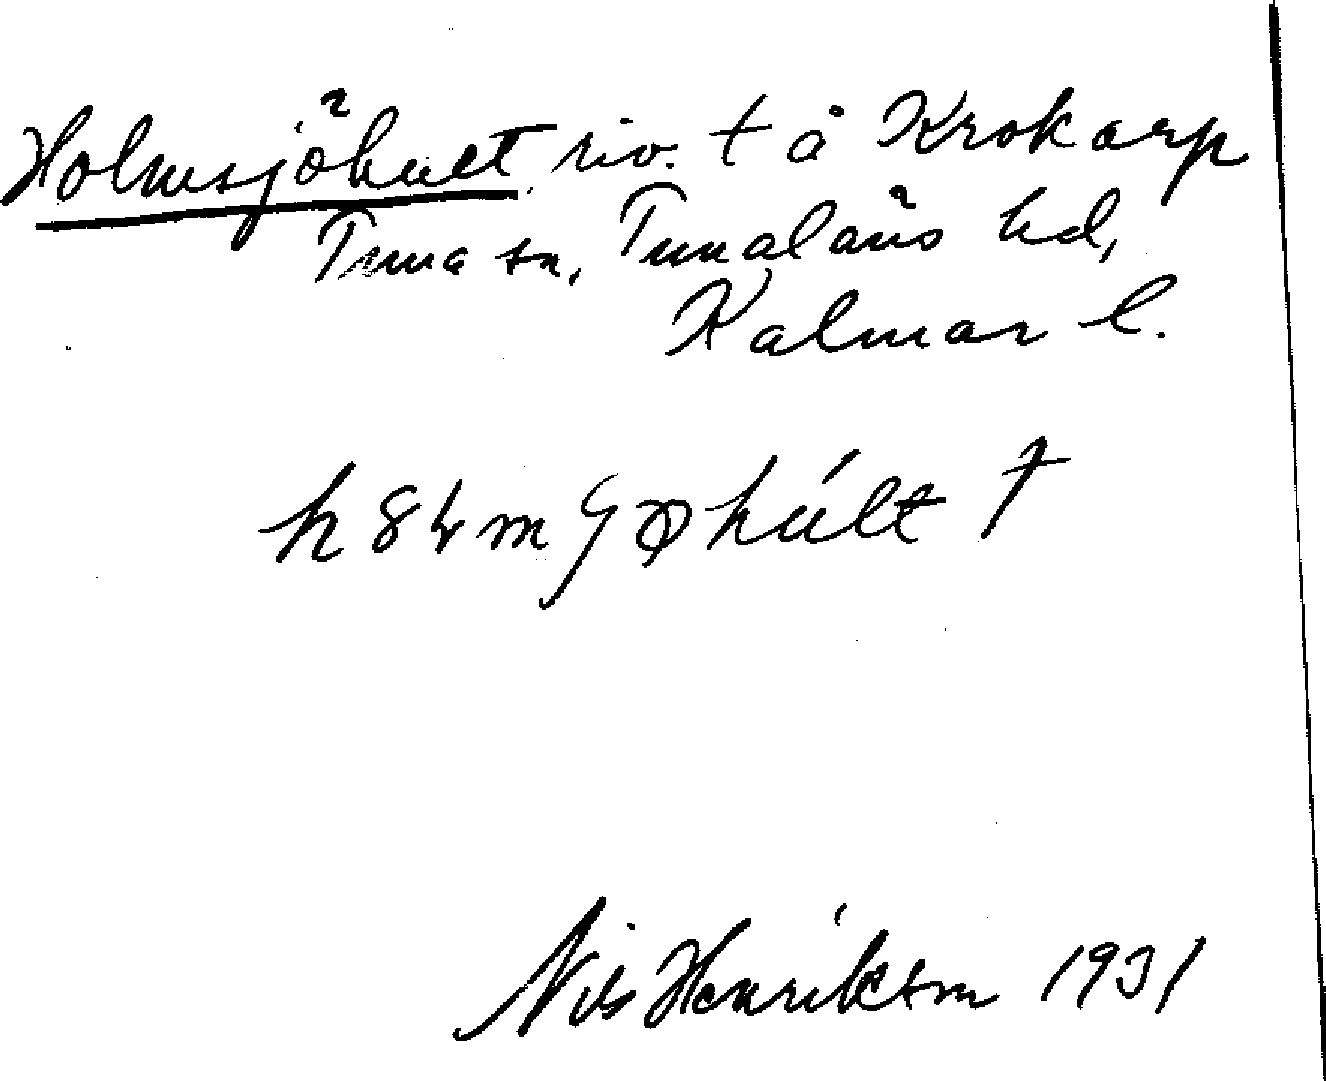 Holmsjöhult, riv. t å Krokarp
Tuna sn, Tunaläns hd,
Kalmar l.
hult †
Nils Henrikson 1931